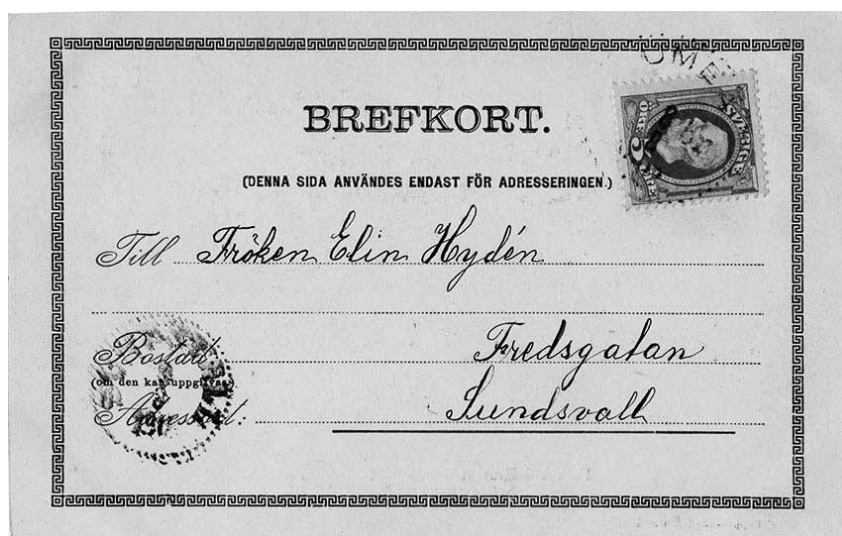 UME
BREFKORT.
SVERIGE
5
ÖRE
(DENNA SIDA ANVÄNDES ENDAST FÖR ADRESSERINGEN.)
Till Fröken Elin Hydén
Bostad:
Fredsgatan
(om den kan uppgifvas)
Adressort:
Sundsvall